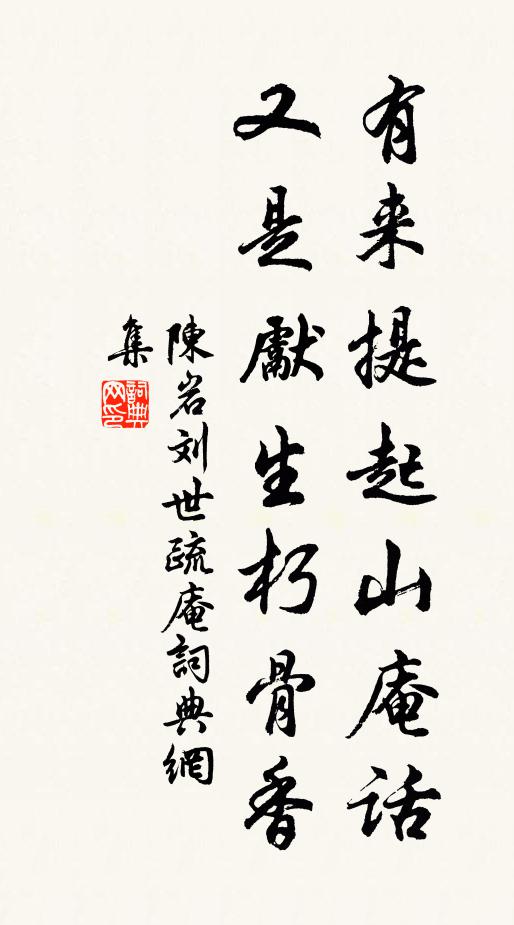 有来提起山庵话
又是獻生朽骨香
陳岩刘世疏庵詞典網
集
詞典
网印